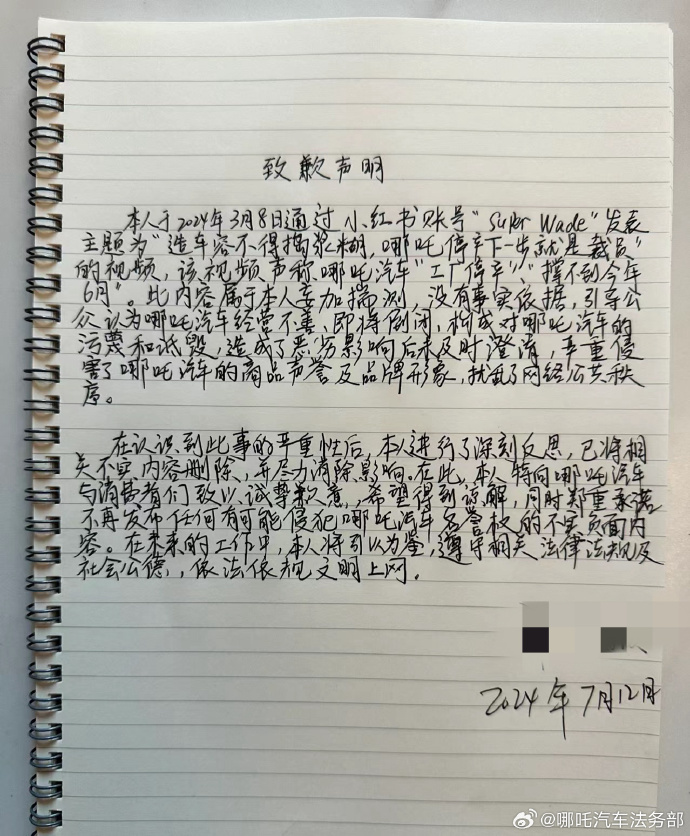 致歉声明
本人于2024年3月8日通过小红书账号"Super Wade"发表
主题为"造车容不得捣浆糊,哪吒停产下一步就是裁员"
的视频,该视频声称哪吒汽车"工厂停产""撑不到今年
6月"。此内容属于本人妄加揣测,没有事实依据,引导公
众认为哪吒汽车经营不善,即将倒闭,构成对哪吒汽车的
污蔑和诋毁,造成了恶劣影响后未及时澄清,严重侵
害了哪吒汽车的商品声誉及品牌形象,扰乱了网络公共秩
序。
在认识到此事的严重性后,本人进行了深刻反思,已将相
关不实内容删除,并尽力消除影响。在此,本人特向哪吒汽车
与消费者们致以诚挚歉意,希望得到谅解,同时郑重承诺
不再发布任何有可能侵犯哪吒汽车名誉权的不实负面内
容。在未来的工作中,本人将引以为鉴,遵守相关法律法规及
社会公德,依法依规文明上网。
2024年7月12日
@哪吒汽车法务部